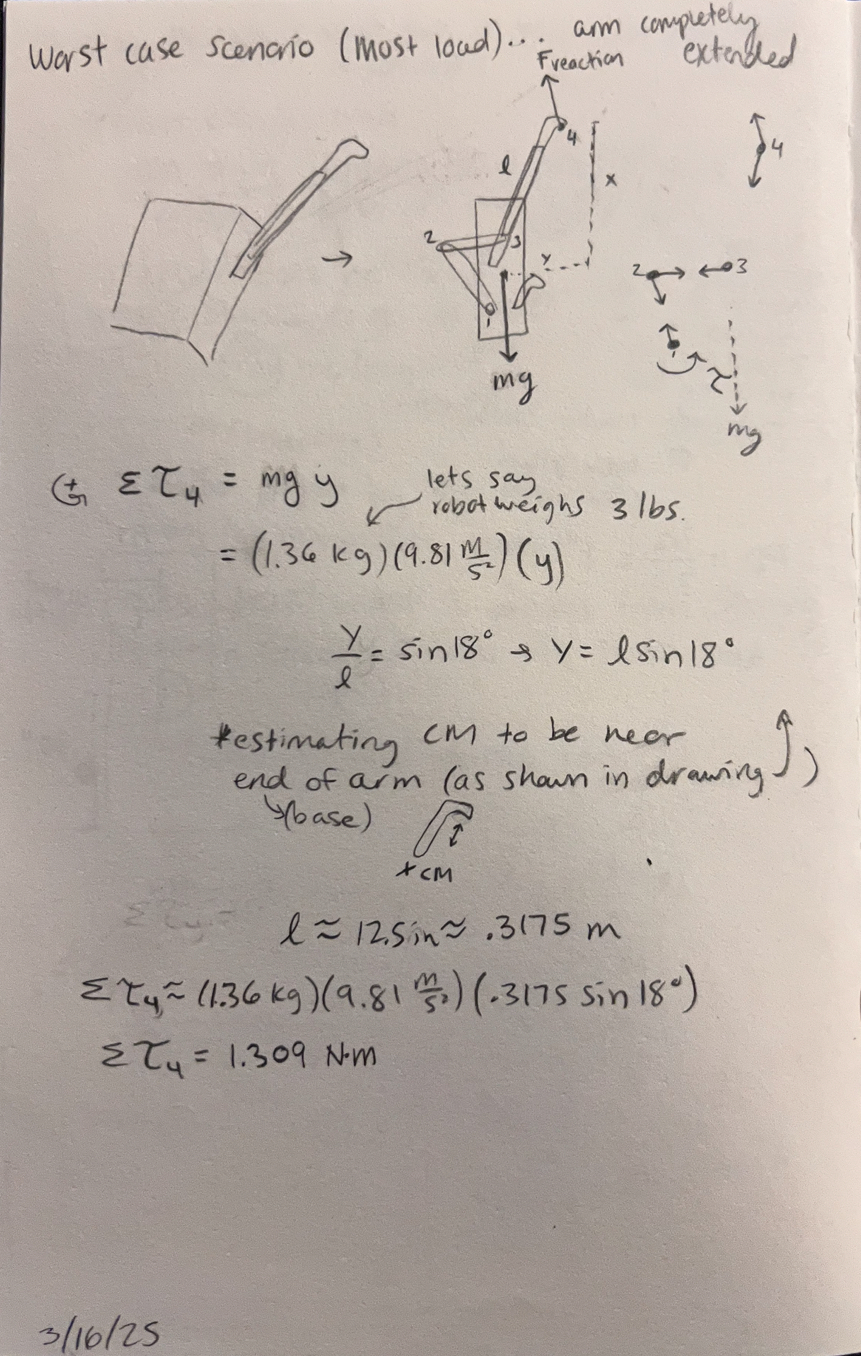 Worst case scenario (most load)... arm completely
extended
Freaction
4
l
x
2
3
y
1
mg
4
2
3
τ
mg
+ Σ τ₄ = mg y
lets say
robot weighs 3 lbs.
= (1.36 kg)(9.81 m/s²)(y)
y/l = sin18° → y = l sin18°
*estimating CM to be near
end of arm (as shown in drawing)
(base)
CM
l ≈ 12.5in ≈ .3175 m
Σ τ₄ ≈ (1.36 kg)(9.81 m/s²)(.3175 sin 18°)
Σ τ₄ = 1.309 N·m
3/16/25